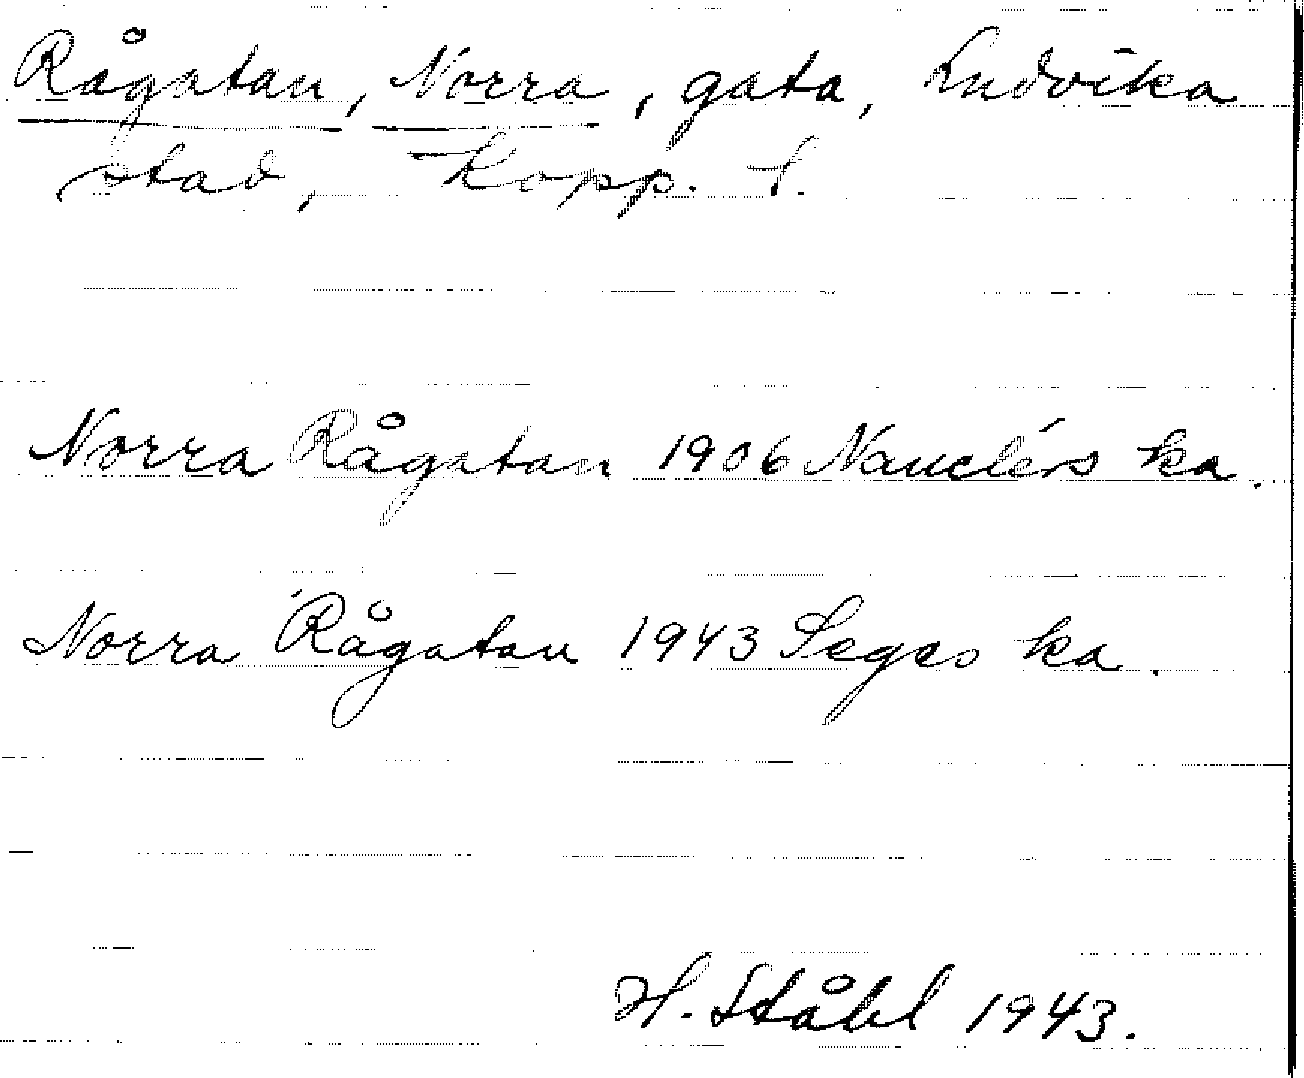 Rågatan, Norra, gata, Ludvika
stad, Kopp. l.
Norra Rågatan 1906 Nauclérs ka.
Norra Rågatan 1943 Seges ka.
H. Ståhl 1943.